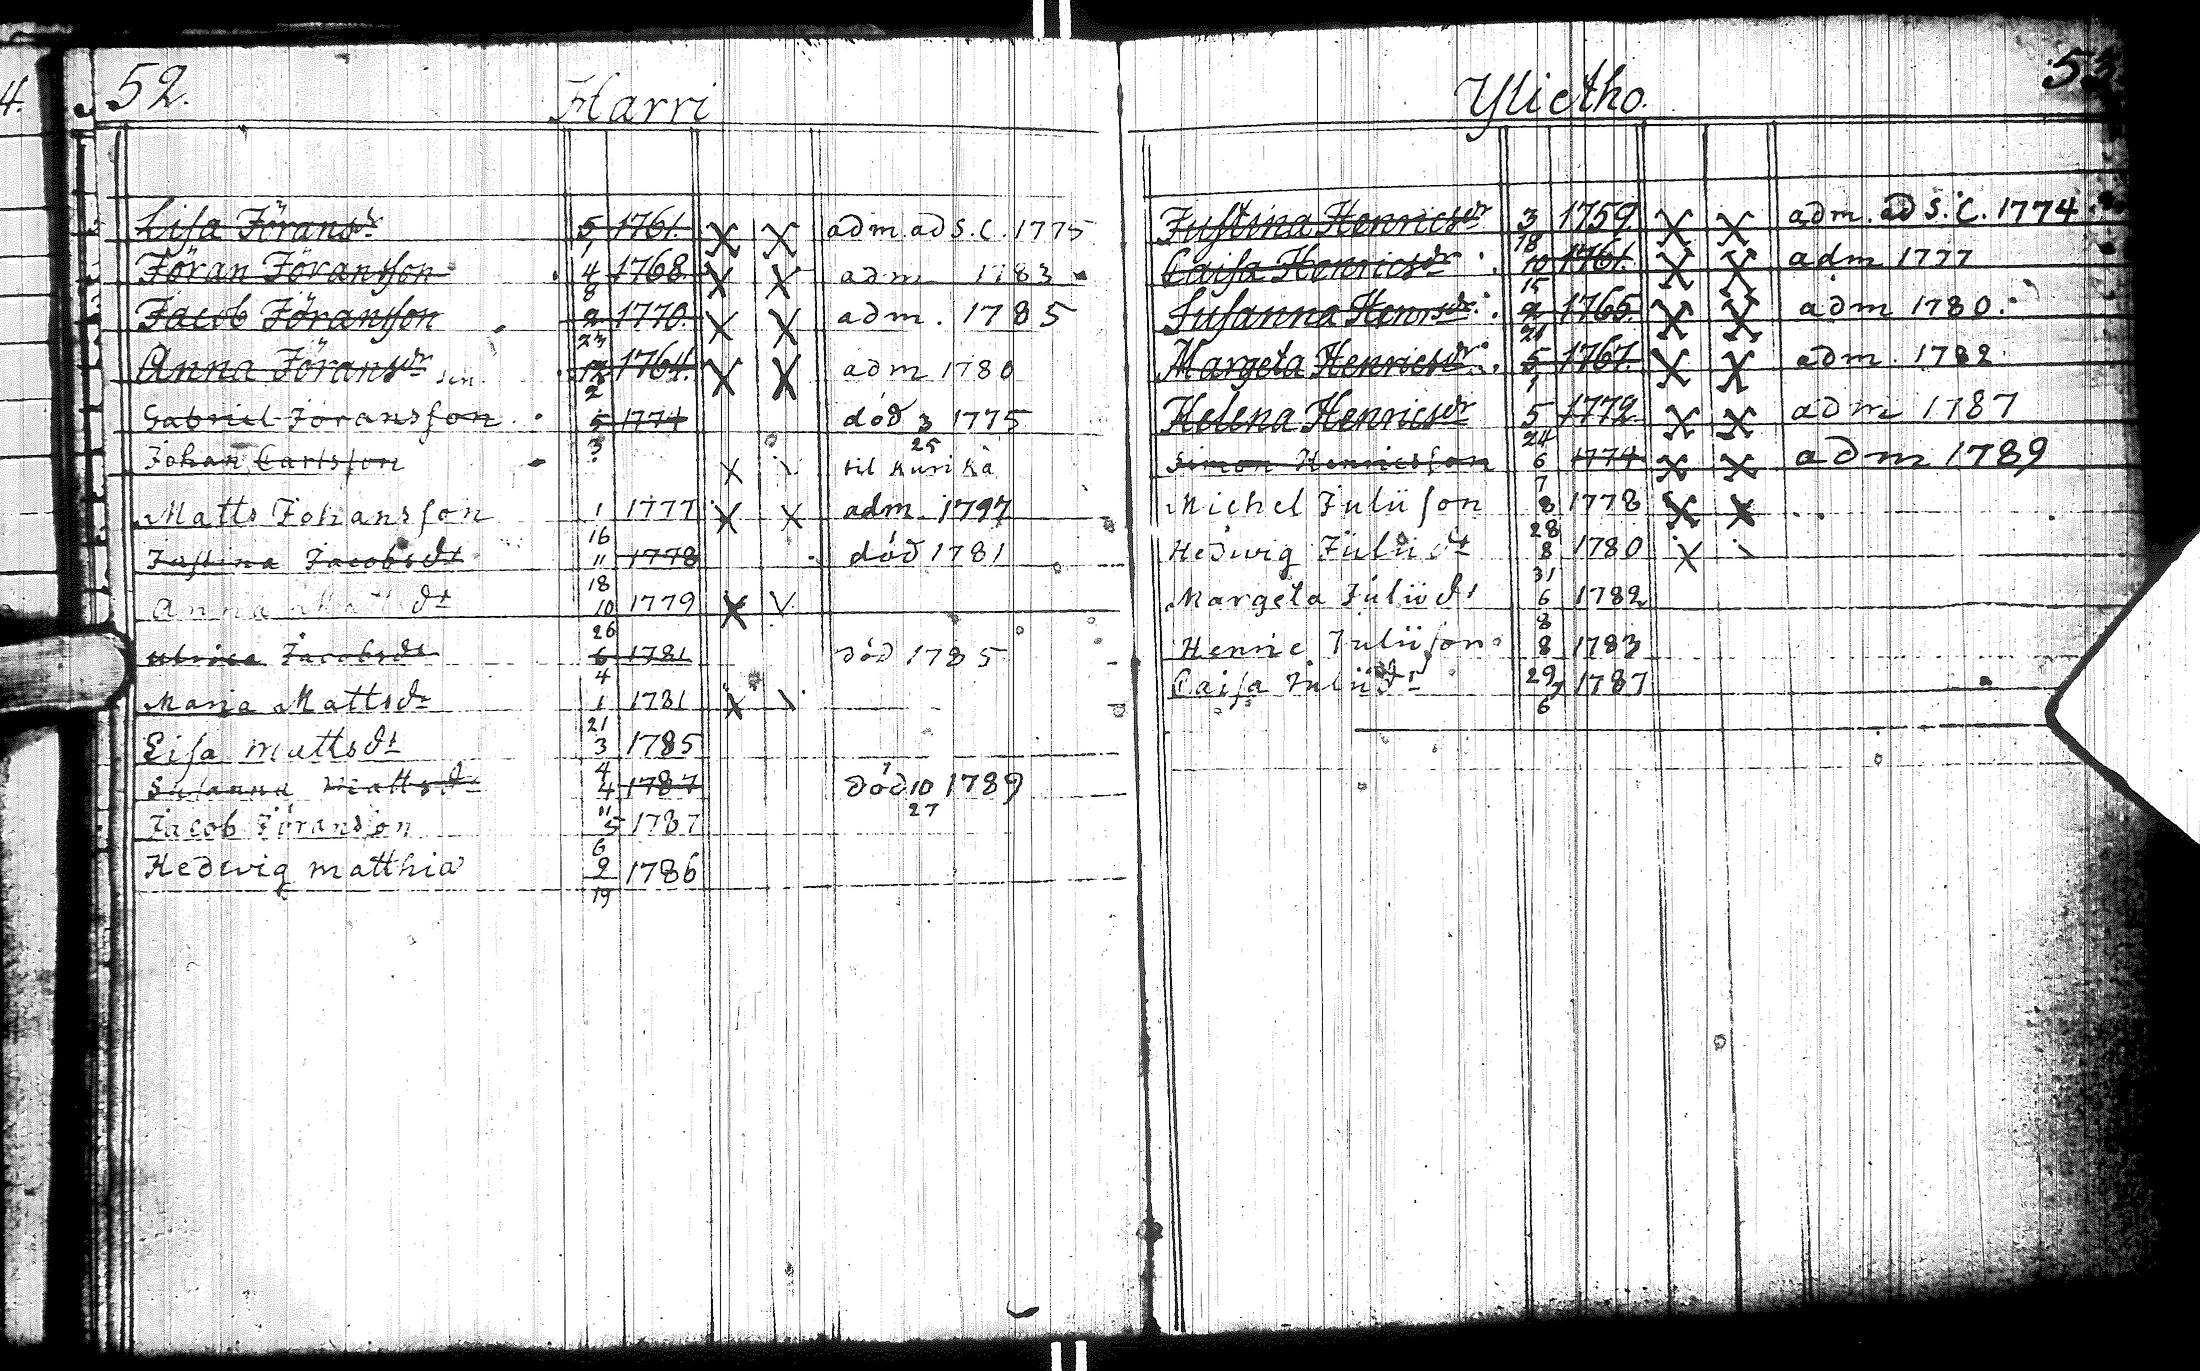 52.
Harri
Lisa Jöransdr 5/1 1761. X X adm. ad S. C. 1775
Jöran Jöransson 4/8 1768. X X adm 1783
Jacob Jöransson 2/23 1770. X X adm. 1785
Anna Jöransdr 2 1764. X X adm 1780
Gabriel Jöransson 5/3 1774 död 3/25 1775
Johan Carlsson X \ til Kurika
Matts Johansson 1/16 1777 X X adm. 1797
Justina Jacobsdt 11/18 1778 död 1781
Anna Mattsdt 10/26 1779 X V
Ulrica Jacobsdt 6/4 1781 död 1785
Maria Mattsdr 1/21 1781 X \
Lisa Mattsdt 3/4 1785
Susanna Mattsdr 4/11 1787 död 10/27 1789
Jacob Jöransson 5/6 1787
Hedwig Matthiæ 9/19 1786
Ylietho.
53
Justina Henricsdr 3/18 1759. X X adm. ad S. C. 1774
Caisa Henricsdr 10/15 1761. X X adm 1777
Susanna Henrsdr. 2/21 1765. X X adm 1780.
Margeta Henricsdr. 5/1 1767. X X adm. 1782
Helena Henricsdr 5/24 1772. X X adm 1787
Simon Henricsson 6/7 1774 X X adm 1789
Michel Juliison 8/28 1778 X X
Hedwig Juliidt 8/31 1780 X \
Margeta Juliidt 6/8 1782
Henric Juliison 8/29 1783
Caisa Juliidt 7/6 1787